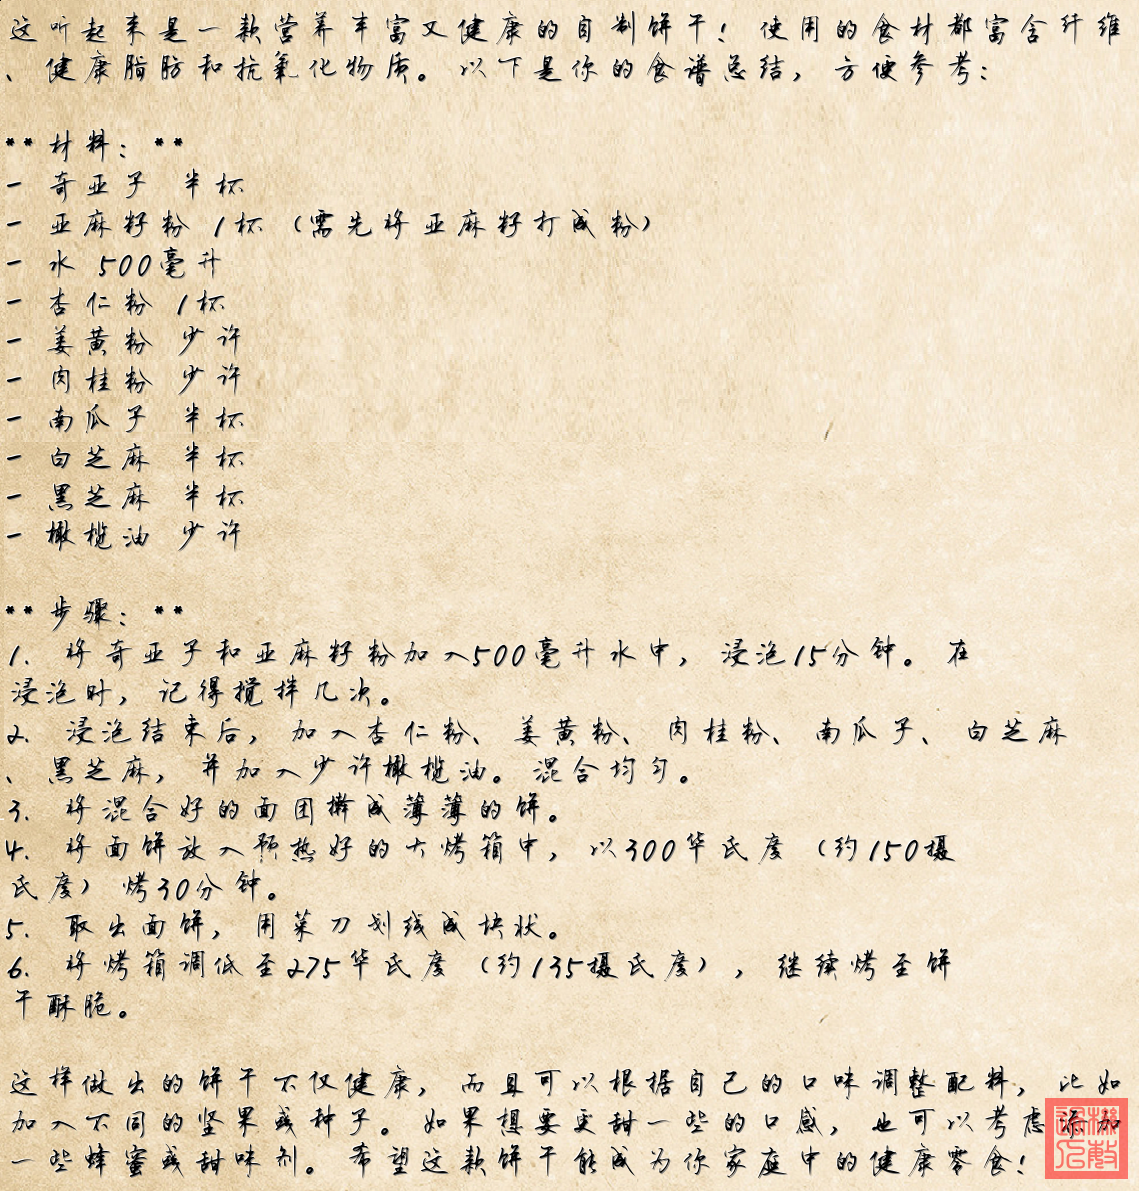 这听起来是一款营养丰富又健康的自制饼干！使用的食材都富含纤维
、健康脂肪和抗氧化物质。以下是你的食谱总结，方便参考：
**材料：**
- 奇亚子 半杯
- 亚麻籽粉 1杯（需先将亚麻籽打成粉）
- 水 500毫升
- 杏仁粉 1杯
- 姜黄粉 少许
- 肉桂粉 少许
- 南瓜子 半杯
- 白芝麻 半杯
- 黑芝麻 半杯
- 橄榄油 少许
**步骤：**
1. 将奇亚子和亚麻籽粉加入500毫升水中，浸泡15分钟。在
浸泡时，记得搅拌几次。
2. 浸泡结束后，加入杏仁粉、姜黄粉、肉桂粉、南瓜子、白芝麻
、黑芝麻，并加入少许橄榄油。混合均匀。
3. 将混合好的面团擀成薄薄的饼。
4. 将面饼放入预热好的大烤箱中，以300华氏度（约150摄
氏度）烤30分钟。
5. 取出面饼，用菜刀划线成块状。
6. 将烤箱调低至275华氏度（约135摄氏度），继续烤至饼
干酥脆。
这样做出的饼干不仅健康，而且可以根据自己的口味调整配料，比如
加入不同的坚果或种子。如果想要更甜一些的口感，也可以考虑添加
一些蜂蜜或甜味剂。希望这款饼干能成为你家庭中的健康零食！